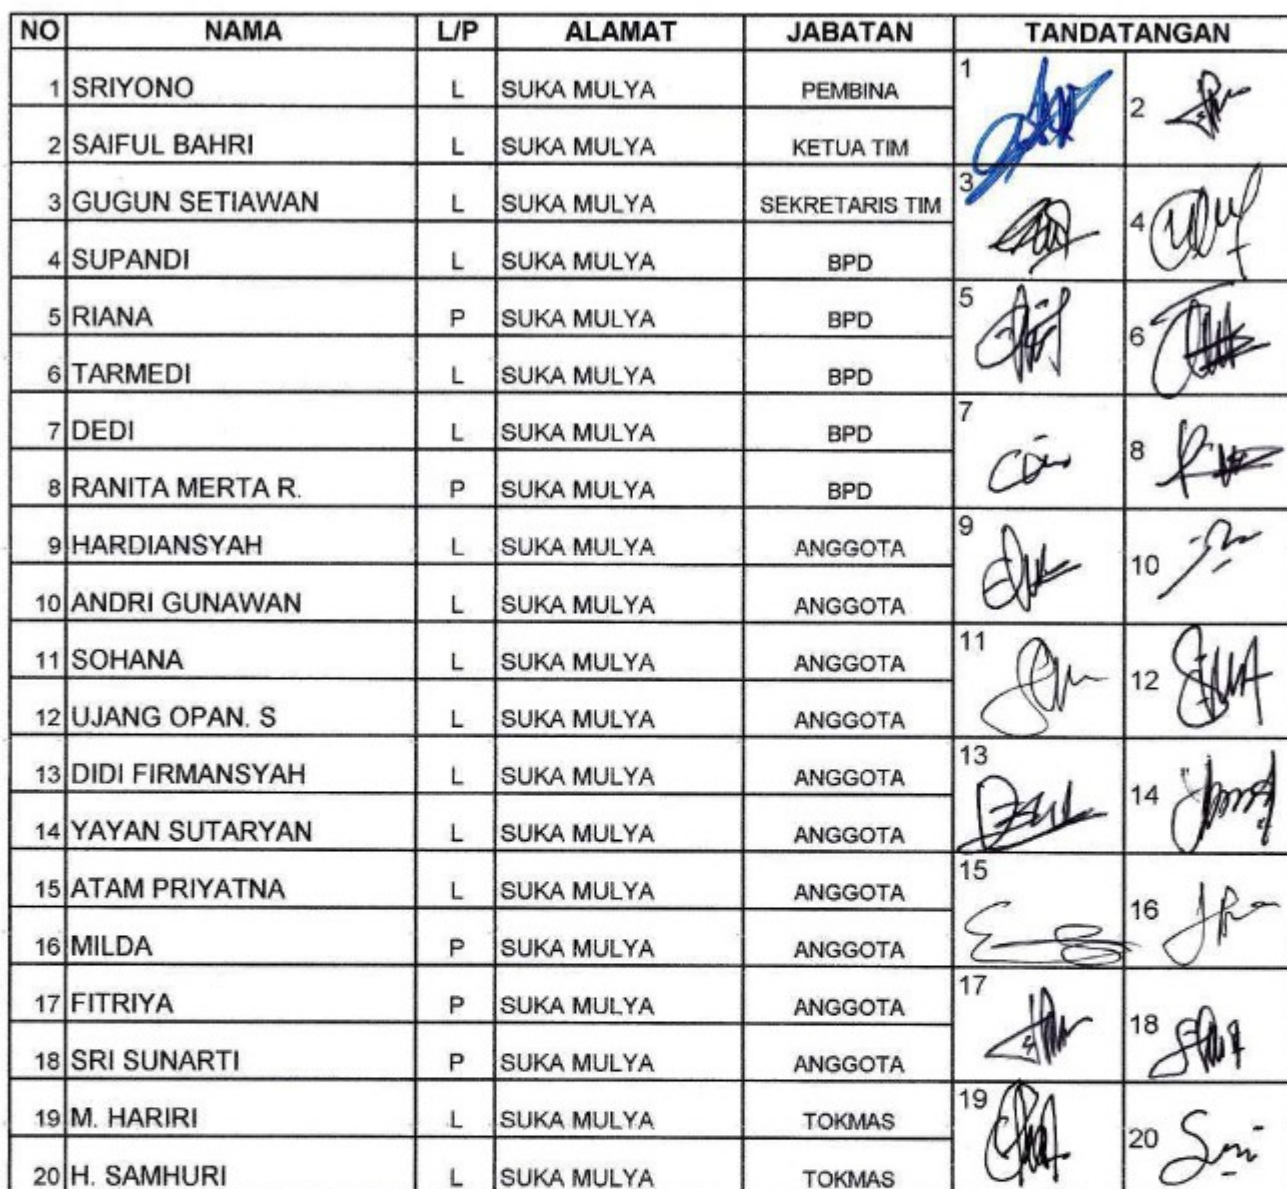 NO NAMA L/P ALAMAT JABATAN TANDATANGAN
1 SRIYONO L SUKA MULYA PEMBINA 1
2 SAIFUL BAHRI L SUKA MULYA KETUA TIM 2
3 GUGUN SETIAWAN L SUKA MULYA SEKRETARIS TIM 3
4 SUPANDI L SUKA MULYA BPD 4
5 RIANA P SUKA MULYA BPD 5
6 TARMEDI L SUKA MULYA BPD 6
7 DEDI L SUKA MULYA BPD 7
8 RANITA MERTA R. P SUKA MULYA BPD 8
9 HARDIANSYAH L SUKA MULYA ANGGOTA 9
10 ANDRI GUNAWAN L SUKA MULYA ANGGOTA 10
11 SOHANA L SUKA MULYA ANGGOTA 11
12 UJANG OPAN. S L SUKA MULYA ANGGOTA 12
13 DIDI FIRMANSYAH L SUKA MULYA ANGGOTA 13
14 YAYAN SUTARYAN L SUKA MULYA ANGGOTA 14
15 ATAM PRIYATNA L SUKA MULYA ANGGOTA 15
16 MILDA P SUKA MULYA ANGGOTA 16
17 FITRIYA P SUKA MULYA ANGGOTA 17
18 SRI SUNARTI P SUKA MULYA ANGGOTA 18
19 M. HARIRI L SUKA MULYA TOKMAS 19
20 H. SAMHURI L SUKA MULYA TOKMAS 20